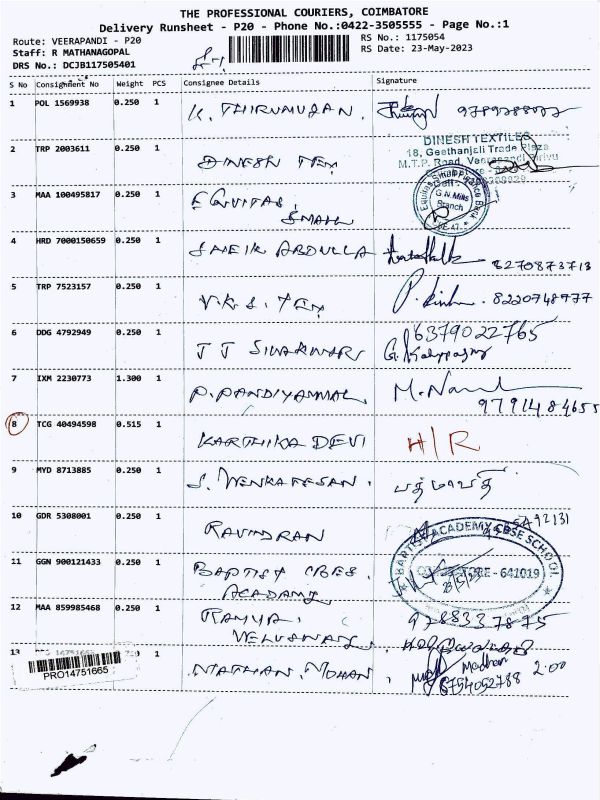 THE PROFESSIONAL COURIERS, COIMBATORE
Delivery Runsheet - P20 - Phone No.:0422-3505555 - Page No.:1
Route: VEERAPANDI - P20
RS No.: 1175054
Staff: R MATHANAGOPAL
RS Date: 23-May-2023
DRS No.: DCJB117505401
S No Consignment No Weight PCS Consignee Details Signature
1 POL 1569938 0.250 1 K. THIRUMUGAN.
2 TRP 2003611 0.250 1 DINESH TEX
DINESH TEXTILES
18, Geethanjali Trade Plaza
M.T.P. Road, Veerapandi Pirivu
3 MAA 100495817 0.250 1 EQUITAS, SMALL
G.N Mills
Branch
4 HRD 7000150659 0.250 1 SHEIK ABDULLA
8270873713
5 TRP 7523157 0.250 1 V.K.S. TEX
8220748977
6 DDG 4792949 0.250 1 JJ SIVAKUMAR
6379022765
7 IXM 2230773 1.300 1 P. PANDIYAMMAL.
9791484655
8 TCG 40494598 0.515 1 KARTHIKA DEVI H/R
9 MYD 8713885 0.250 1 S. VENKATESAN. பத்மாவதி
10 GDR 5308001 0.250 1 RAVINDRAN
11 GGN 900121433 0.250 1 BAPTIST CBES. ACADAMY
BAPTIST ACADEMY CBSE SCHOOL
COIMBATORE - 641019
12 MAA 859985468 0.250 1 RAMYA. VELUSWAMY.
9788337875
13 1 MATHAN MOHAN.
PRO14751665
Madhan 2.00